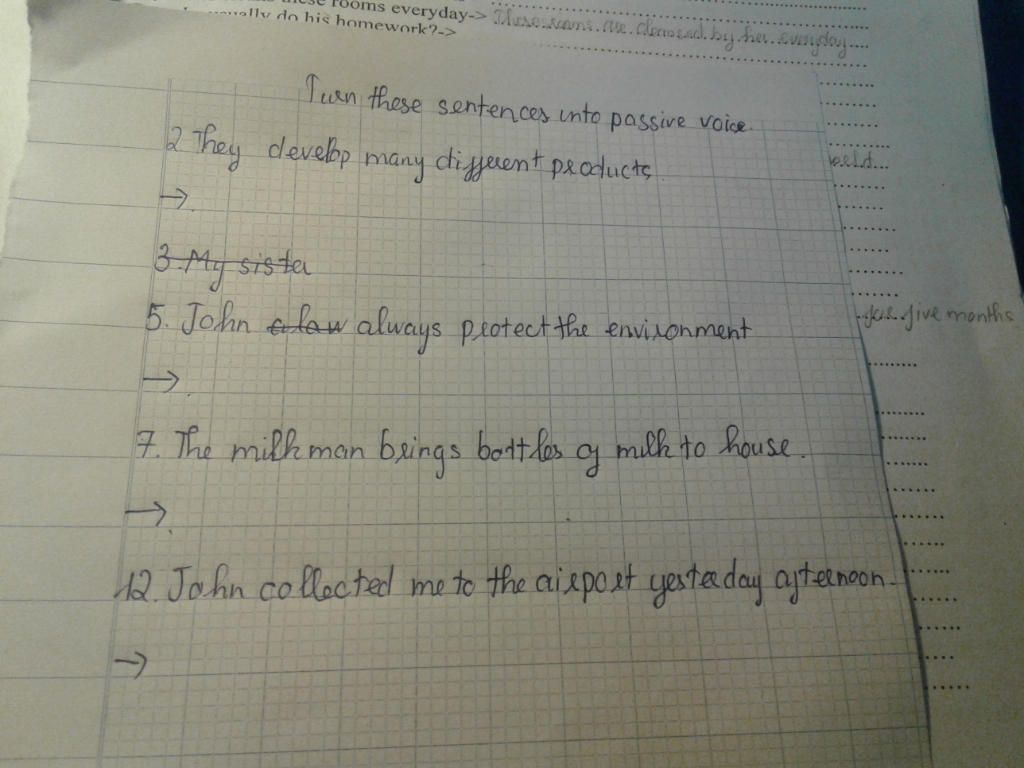 these rooms everyday-> These rooms are cleaned by her everyday
usually do his homework?->
Turn these sentences into passive voice.
2 They develop many different products
→
3. My sister
5. John always protect the environment
→
held
for five months
7. The milkman brings bottles of milk to house.
→
12. John collected me to the airport yesterday afternoon.
→